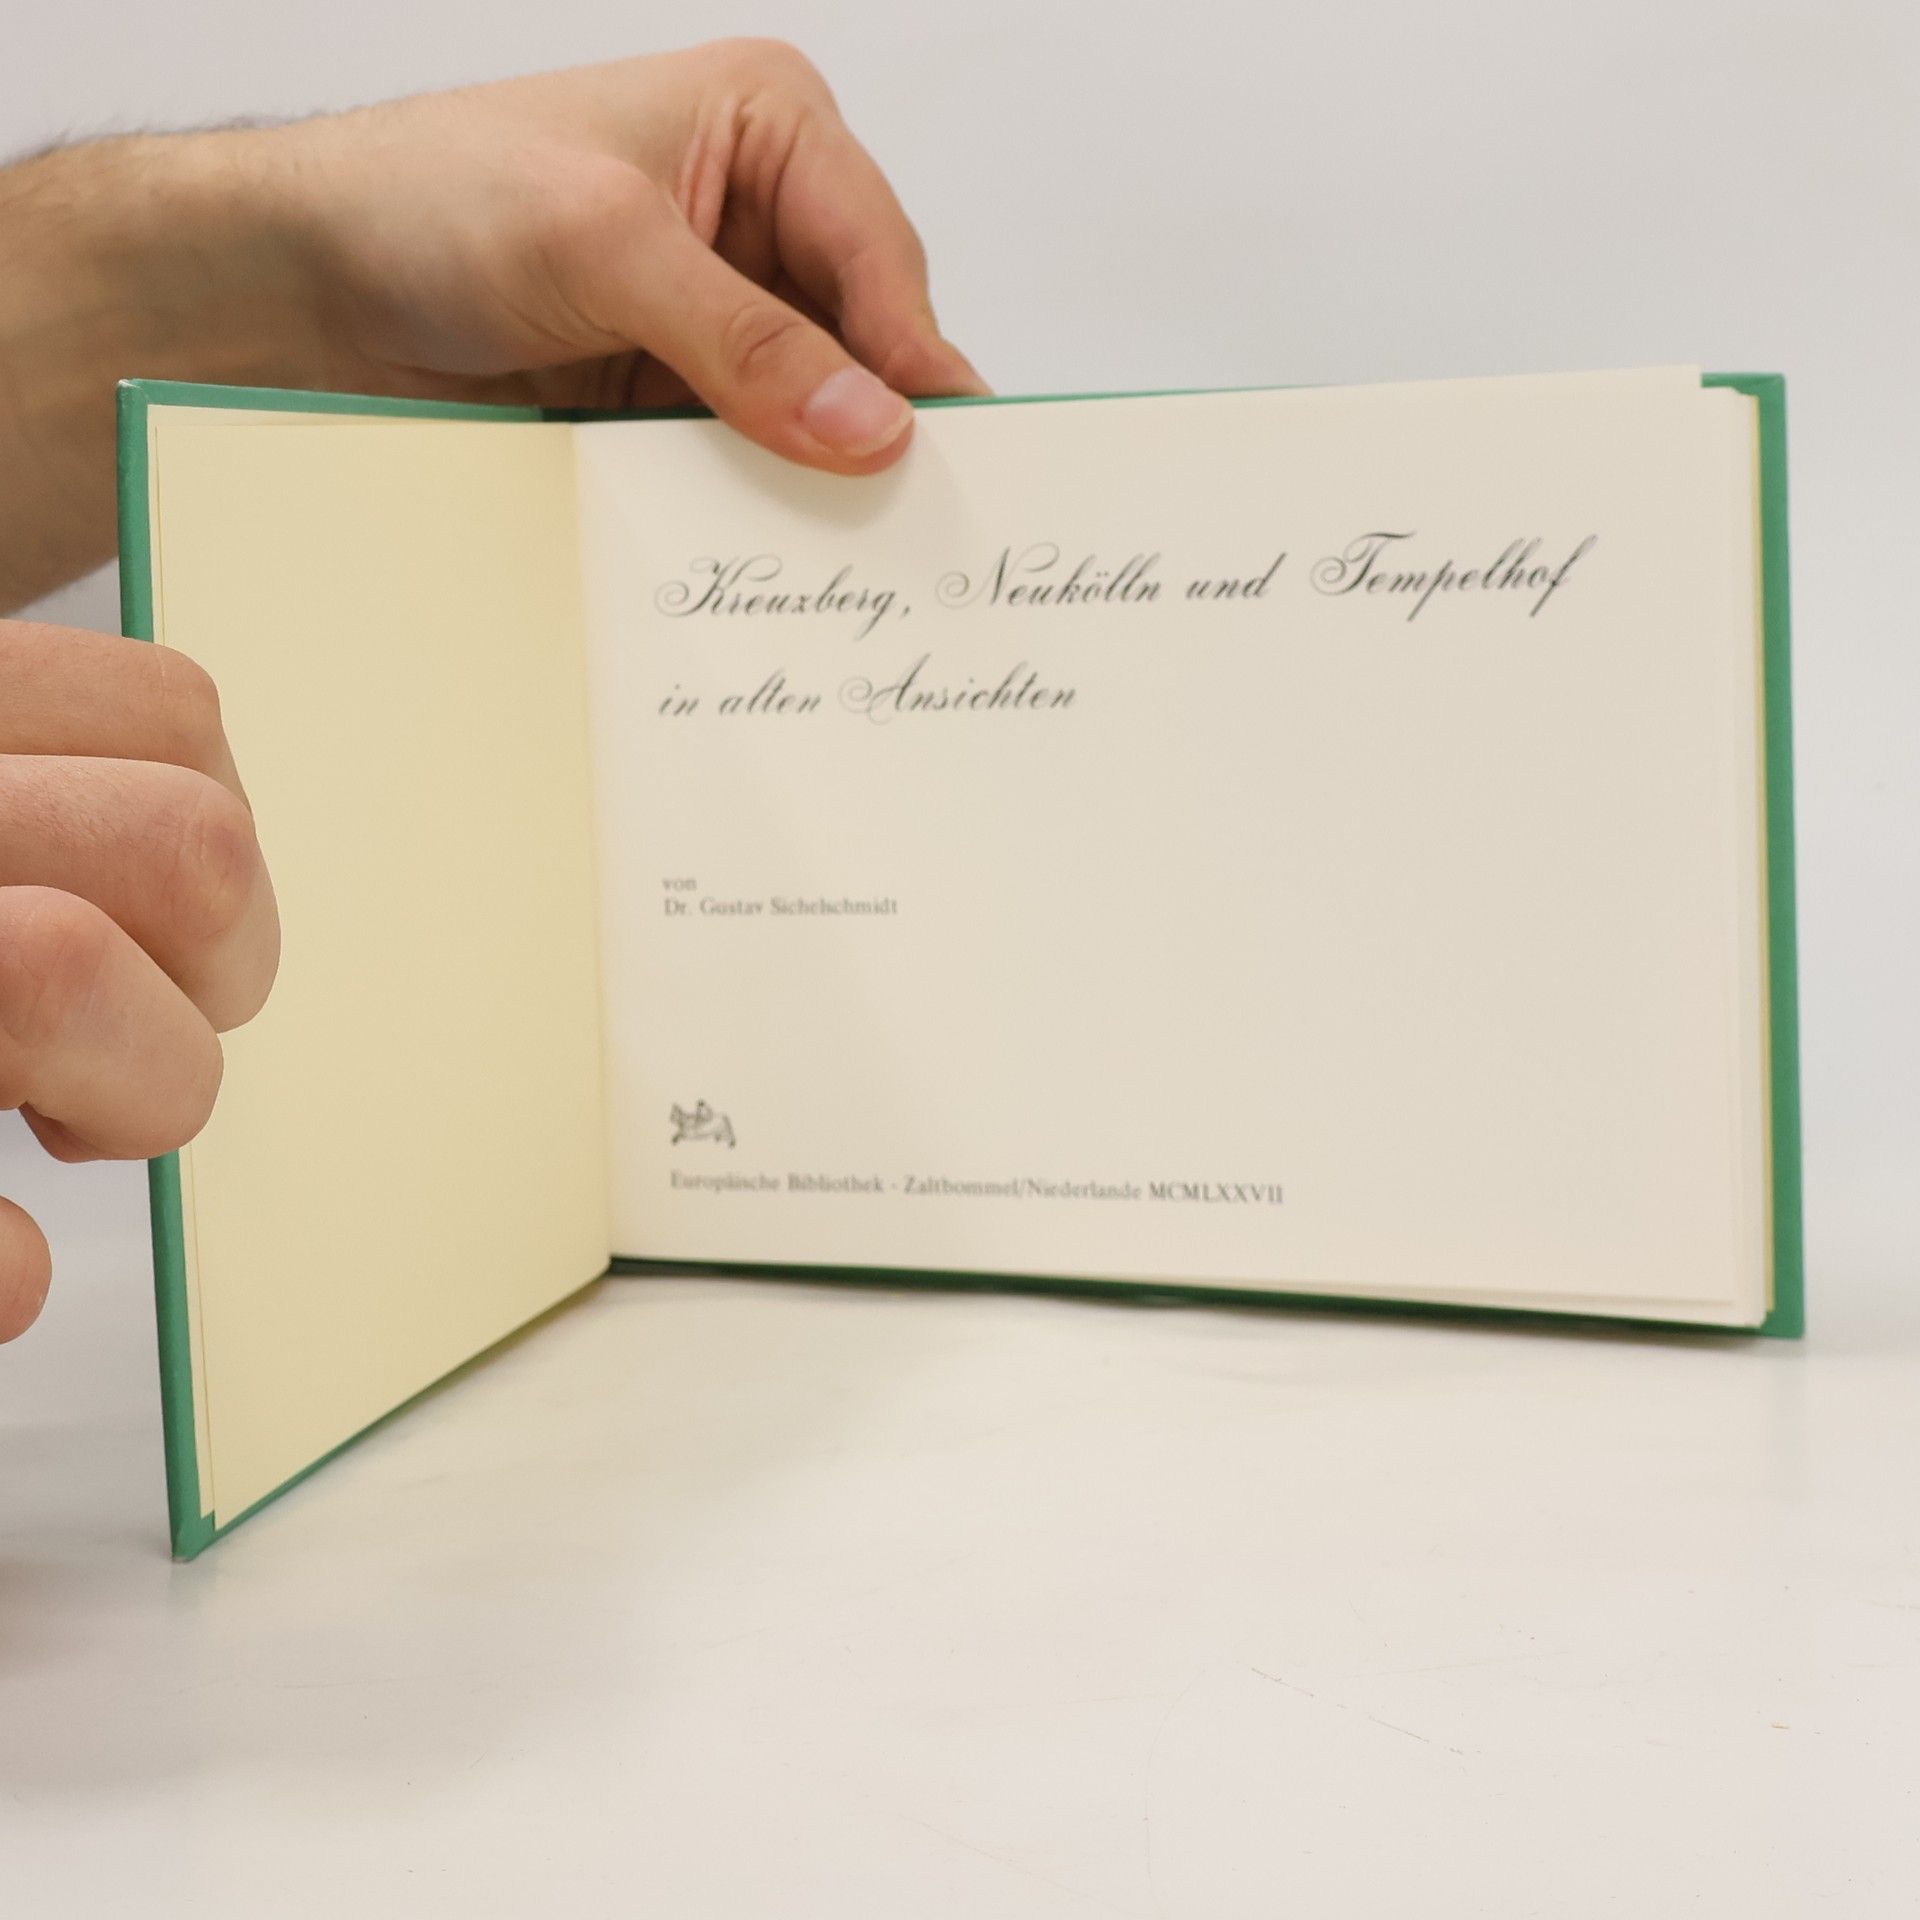 Kreuzberg, Neukölln und Tempelhof
in alten Ansichten
von
Dr. Gustav Sichelschmidt
Europäische Bibliothek - Zaltbommel/Niederlande MCMLXXVII